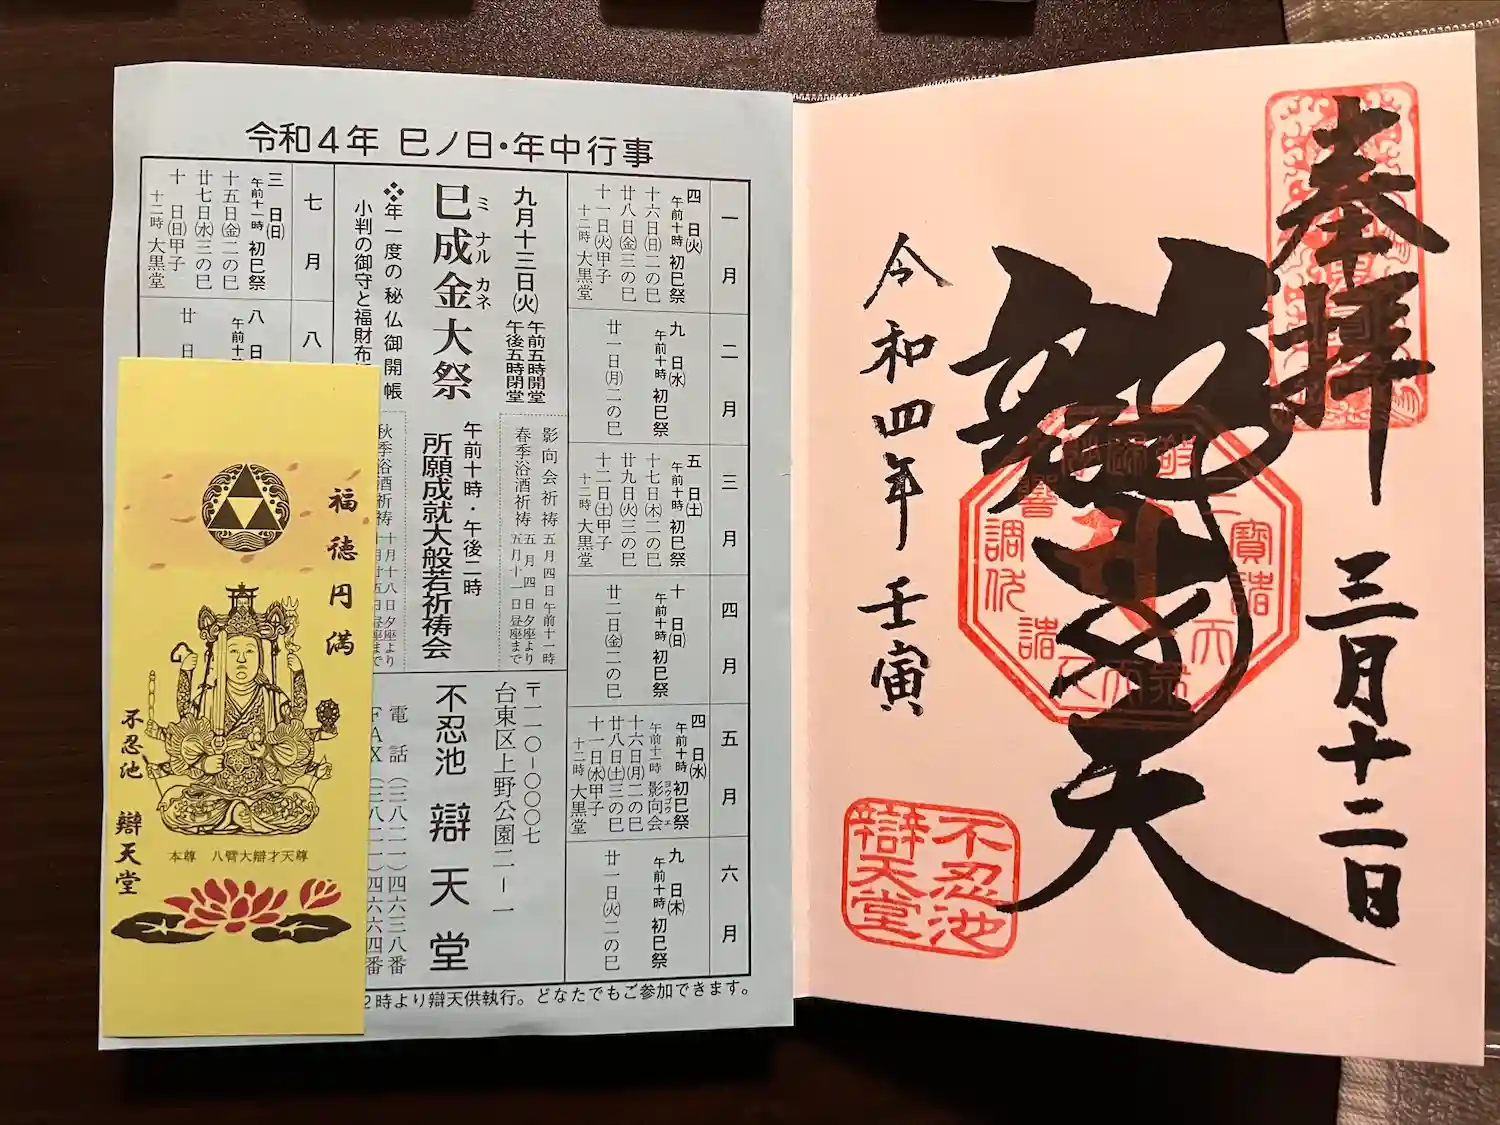 令和4年 巳ノ日・年中行事
一月
四日㈫ 午前十時 初巳祭
十六日㈰二の巳
廿八日㈮三の巳
十一日㈫甲子
十二時 大黒堂
二月
九日㈬ 午前十時 初巳祭
廿一日㈪二の巳
三月
五日㈯ 午前十時 初巳祭
十七日㈭二の巳
廿九日㈫三の巳
十二日㈯甲子
十二時 大黒堂
四月
十日㈰ 午前十時 初巳祭
廿二日㈮二の巳
五月
四日㈬ 午前十時 初巳祭
午前十一時 影向会
ヨウゴウエ
十六日㈪二の巳
廿八日㈯三の巳
十一日㈬甲子
十二時 大黒堂
六月
九日㈭ 午前十時 初巳祭
廿一日㈫二の巳
九月十三日㈫
午前五時開堂
午後五時閉堂
巳成金大祭
ミ ナル カネ
❖年一度の秘仏御開帳
小判の御守と福財布
影向会祈祷 五月四日午前十一時
春季浴酒祈祷 五月四日夕座より
五月十一日昼座まで
午前十時・午後二時
所願成就大般若祈祷会
秋季浴酒祈祷 十月十八日夕座より
十月廿五日昼座まで
〒一一〇-〇〇〇七
台東区上野公園二-一
不忍池 辯天堂
電話(三八二一)四六三八番
FAX(三八二一)四六六四番
七月
三日㈰ 午前十一時 初巳祭
十五日㈮二の巳
廿七日㈬三の巳
十日㈰甲子
十二時 大黒堂
八
八日
午前十
廿
日
2時より辯天供執行。どなたでもご参加できます。
福徳円満
不忍池 辯天堂
本尊 八臂大辯才天尊
奉拝
三月十二日
辯才天
令和四年 壬寅
不忍池
辯天堂